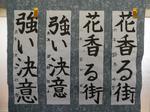 花香る街
花香る街
強い決意
強い決意